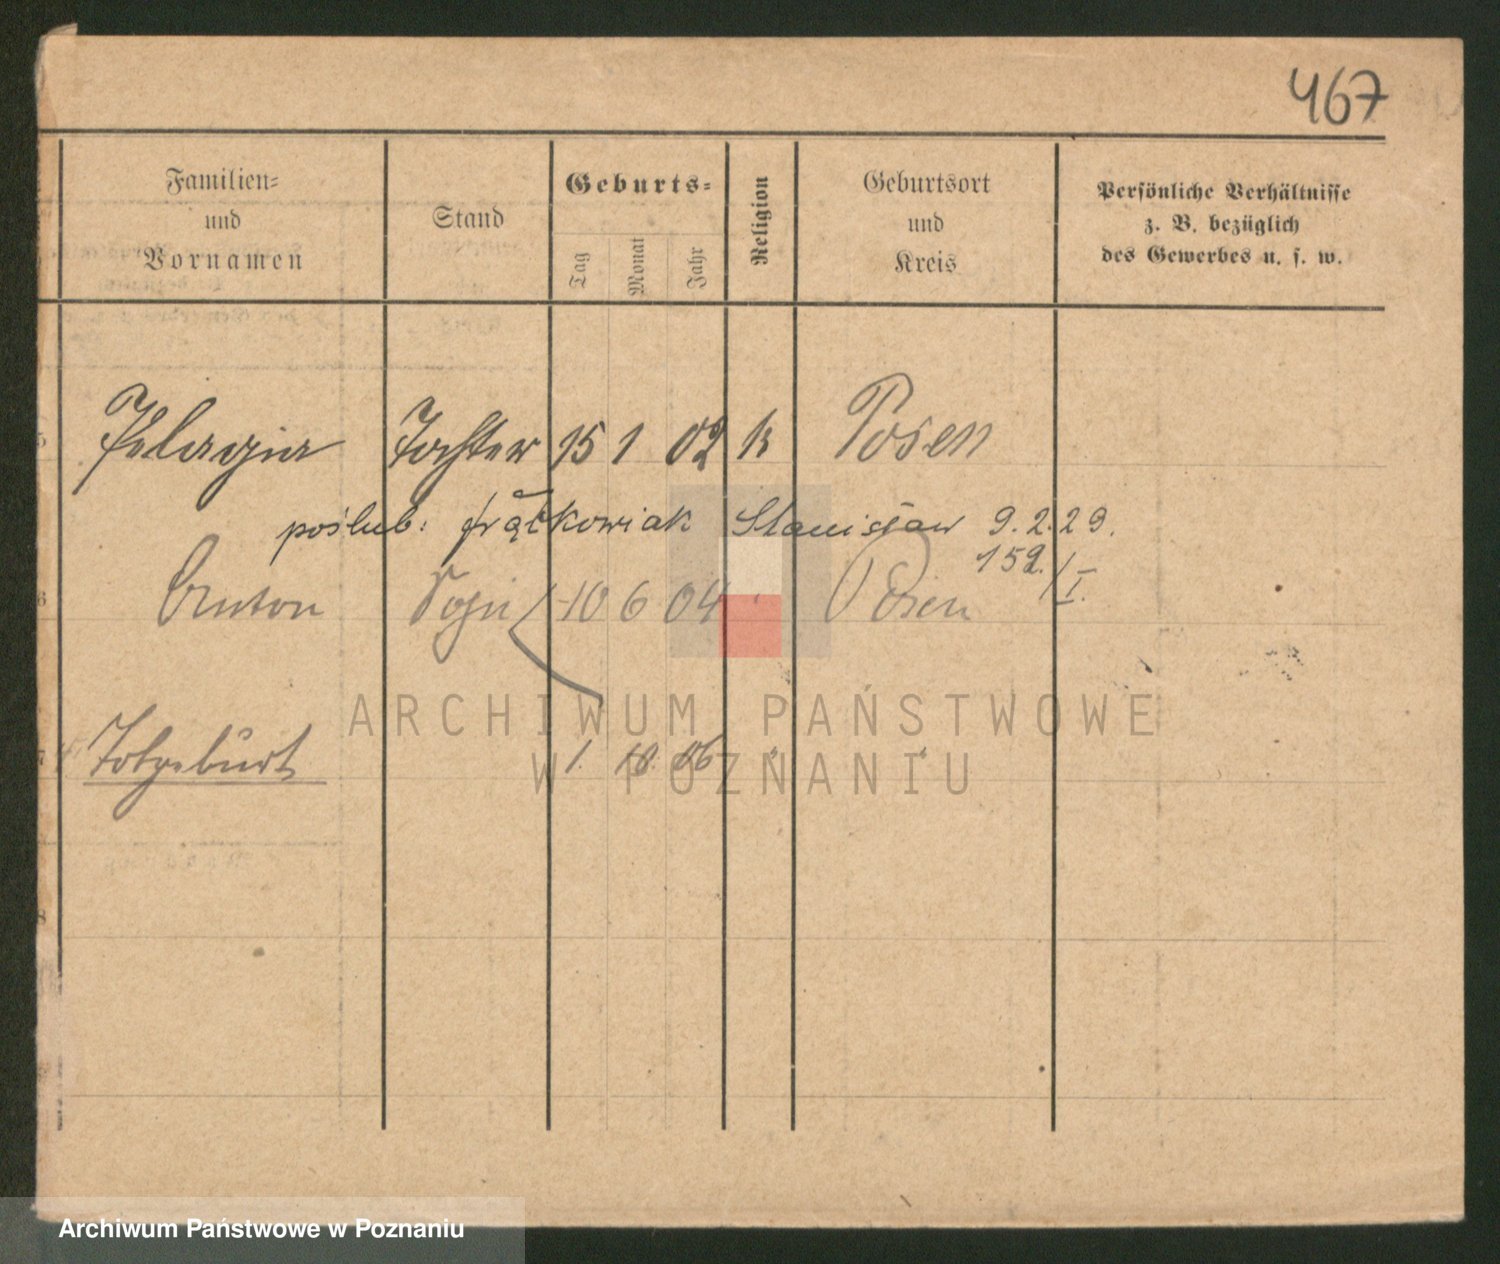 467
Familien= und Vornamen
Stand
Geburts=
Tag Monat Jahr
Religion
Geburtsort und Kreis
Persönliche Verhältnisse z. B. bezüglich des Gewerbes u. s. w.
5 Pelagia Tochter 15 1 02 k Posen
poślub: Frąckowiak Stanisław 9.2.29.
159./I.
6 Anton Sohn 10 6 04 " Posen
7 Totgeburt 1. 10. 06 " "
8
ARCHIWUM PAŃSTWOWE
W POZNANIU
Archiwum Państwowe w Poznaniu